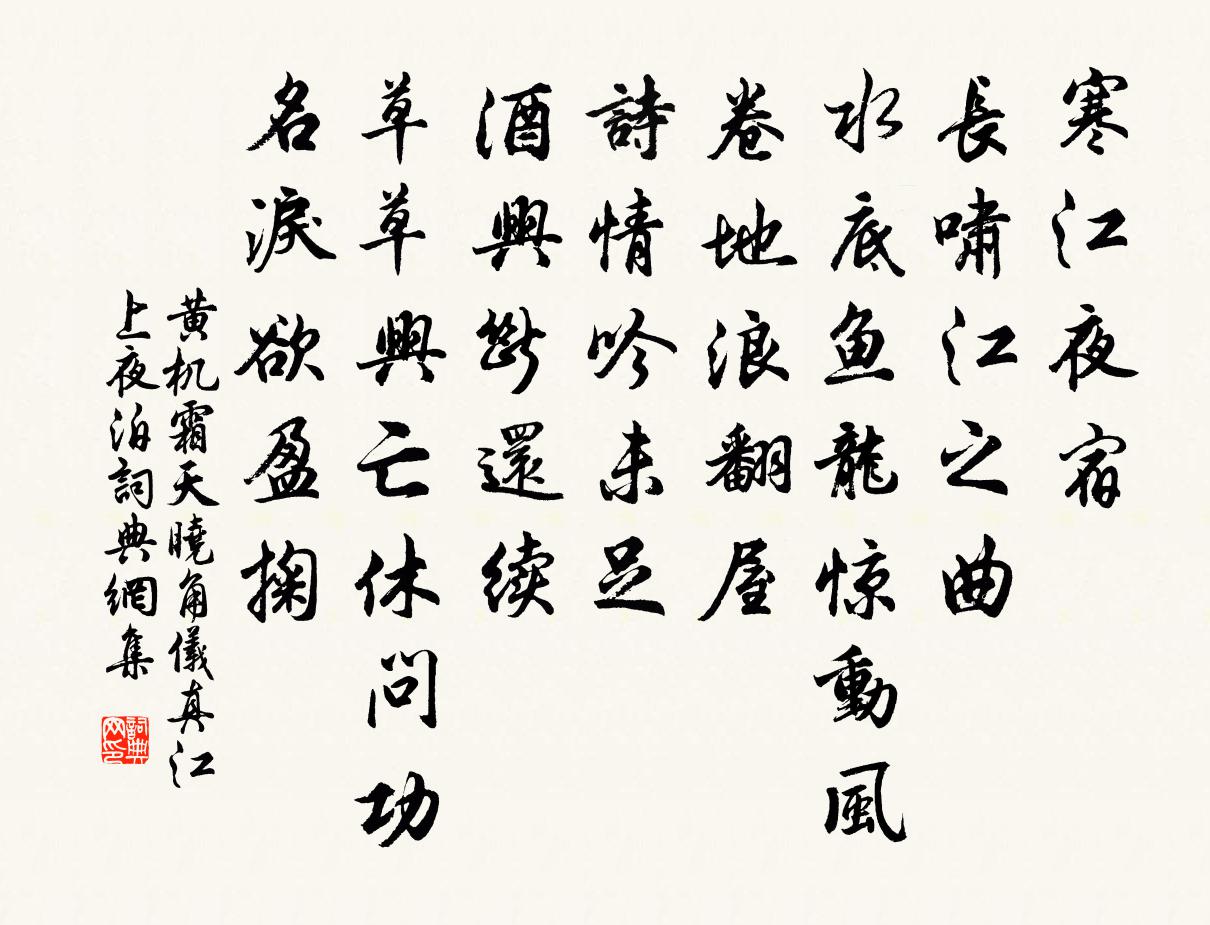 寒江夜宿
長嘯江之曲
水底鱼龍惊動風
卷地浪翻屋
詩情吟未足
酒興斷還續
草草興亡休問功
名淚欲盈掬
黄机霜天曉角儀真江
上夜泊詞典網集
詞典网印